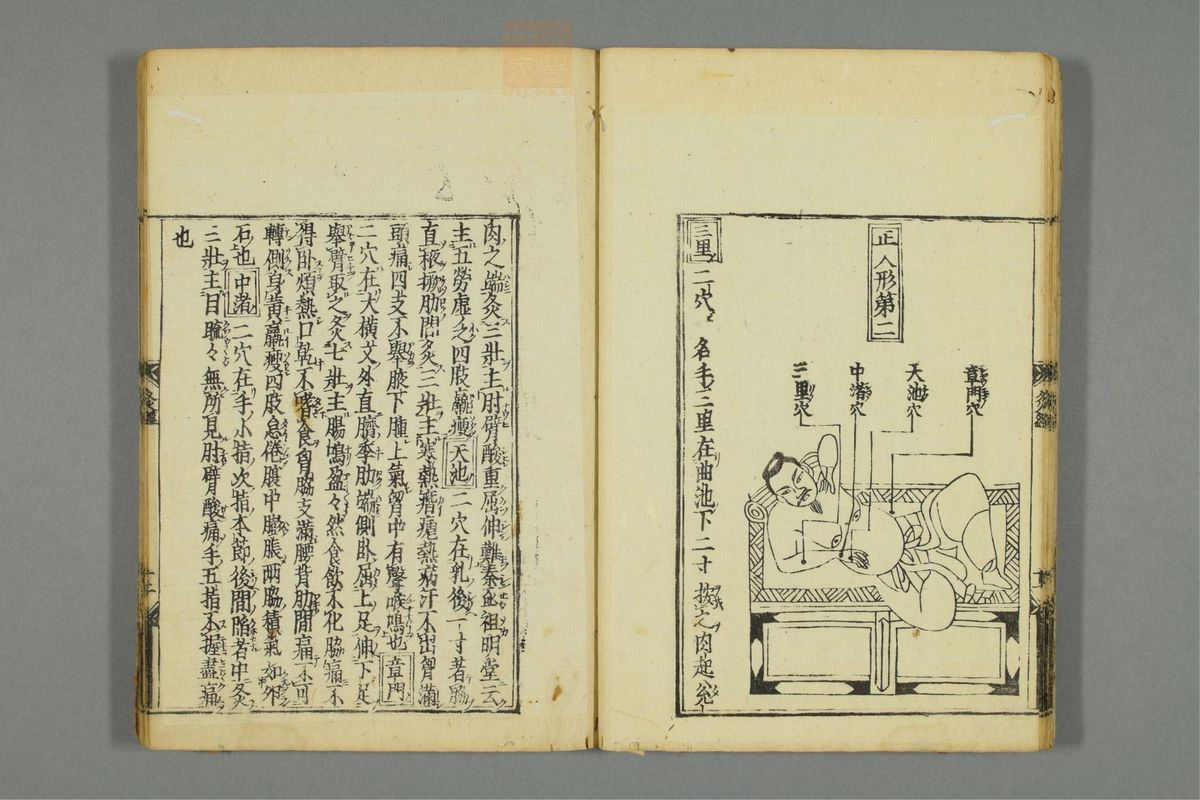 正人形第二
章門穴
天池穴
中渚穴
三里穴
三里 二穴 名手三里在曲池下二寸按之肉起兌
肉之端灸三壯主肘臂酸重屈伸難秦丞祖明堂云
主五勞虛乏四肢羸瘦 天池 二穴在乳後一寸着脇
直腋撅肋間灸三壯主寒熱痎瘧熱病汗不出胷滿
頭痛四支不舉腋下腫上氣胷中有聲喉鳴也 章門
二穴在大橫文外直臍季肋端側卧屈上足伸下足
舉臂取之灸七壯主腸鳴盈々然食飲不化脇痛不
得卧煩熱口乾不嗜食胷脇支滿腰背肋間痛不可
轉側身黃羸瘦四肢怠倦腹中膨脹兩脇積氣如卵
石也 中渚 二穴在手小指次指本節後間陷者中灸
三壯主目䀮々無所見肘臂酸痛手五指不握盡痛
也